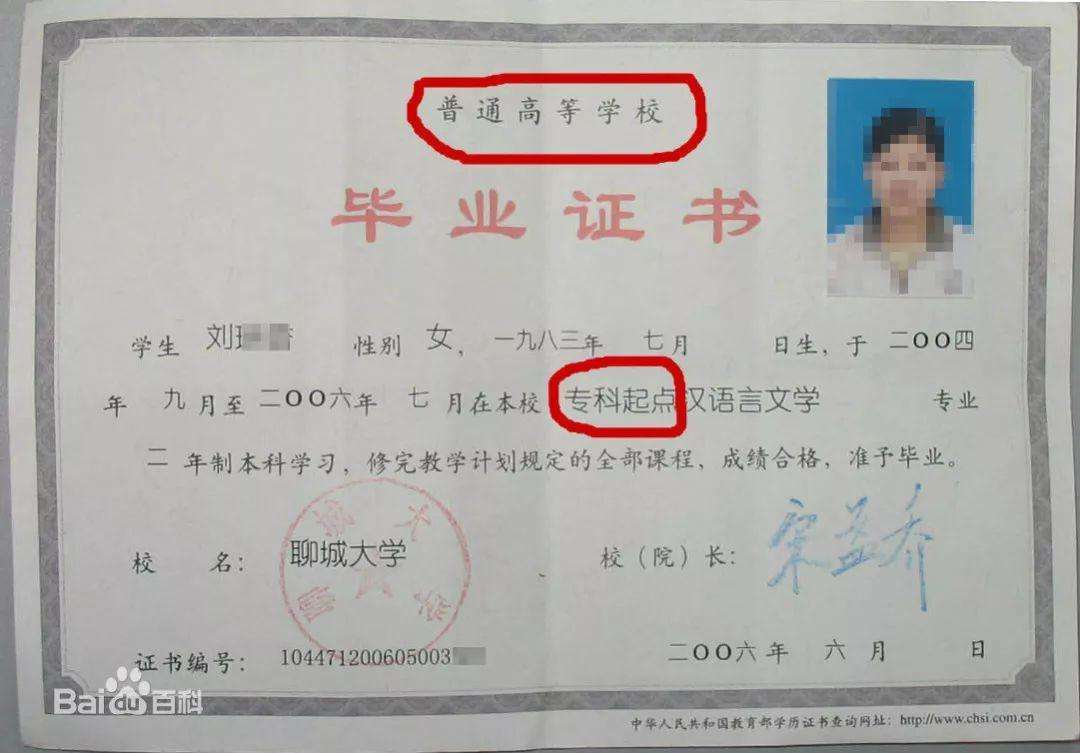 普通高等学校
毕业证书
学生 刘 性别 女，一九八三年 七月 日生，于 二〇〇四
年 九月至 二〇〇六年 七月在本校 专科起点汉语言文学 专业
二 年制本科学习，修完教学计划规定的全部课程，成绩合格，准予毕业。
校 名： 聊城大学 校（院）长： 宋益乔
证书编号： 104471200605003 二〇〇六年 六月 日
Bai百科
中华人民共和国教育部学历证书查询网址：http://www.chsi.com.cn